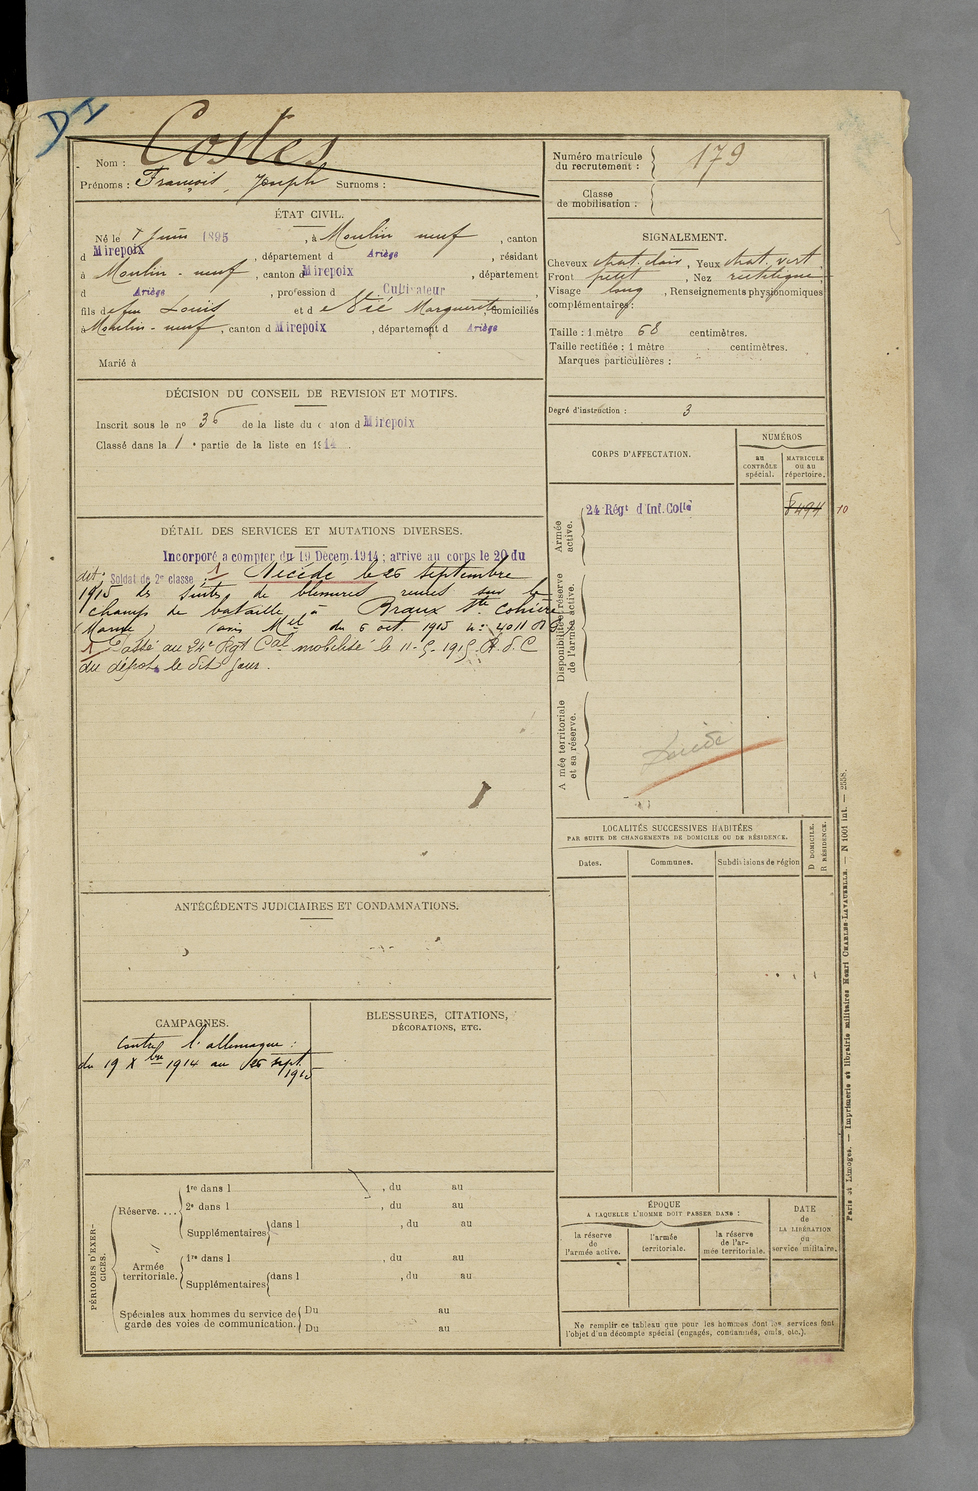 DI
Nom : Costes
Prénoms : François, Joseph Surnoms :
ÉTAT CIVIL.
Né le 7 Juin 1895, à Moulin neuf, canton
d Mirepoix, département d Ariège, résidant
à Moulin-neuf, canton d Mirepoix, département
d Ariège, profession d Cultivateur
fils de feu Louis et de Vié Marguerite domiciliés
à Moulin-neuf, canton d Mirepoix, département d Ariège
Marié à
DÉCISION DU CONSEIL DE REVISION ET MOTIFS.
Inscrit sous le no 36 de la liste du canton d Mirepoix
Classé dans la 1e partie de la liste en 1914.
DÉTAIL DES SERVICES ET MUTATIONS DIVERSES.
Incorporé a compter du 19 Décem. 1914 ; arrive au corps le 20 du
dit ; Soldat de 2e classe ; Décédé le 25 septembre
1915 des suites de blessures reçues sur le
champ de bataille à Braux Ste Cohière
(Marne) (avis Mel du 6 oct. 1915 no 4011
Passé au 24e Rgt Cal mobilisé le 11-5-1915. R.d.C
du dépôt le dit jour.
ANTÉCÉDENTS JUDICIAIRES ET CONDAMNATIONS.
CAMPAGNES.
Contre l'allemagne :
du 19 Xbre 1914 au 25 sept.
1915
BLESSURES, CITATIONS,
DÉCORATIONS, ETC.
PÉRIODES D'EXERCICES.
Réserve....
1re dans l , du au
2e dans l , du au
Supplémentaires dans l , du au
Armée
territoriale.
1re dans l , du au
Supplémentaires dans l , du au
Spéciales aux hommes du service de
garde des voies de communication.
Du au
Du au
Numéro matricule
du recrutement : 179
Classe
de mobilisation :
SIGNALEMENT.
Cheveux chat. clair, Yeux chat. vert
Front petit, Nez rectiligne
Visage long, Renseignements physionomiques
complémentaires :
Taille : 1 mètre 68 centimètres.
Taille rectifiée : 1 mètre centimètres.
Marques particulières :
Degré d'instruction : 3
CORPS D'AFFECTATION.
NUMÉROS
au
CONTRÔLE
spécial.
MATRICULE
ou au
répertoire.
Armée
active.
24 Régt d'Inf. Colle
8494
10
Disponibilité et réserve
de l'armée active.
Armée territoriale
et sa réserve.
Décédé
LOCALITÉS SUCCESSIVES HABITÉES
PAR SUITE DE CHANGEMENTS DE DOMICILE OU DE RÉSIDENCE.
Dates.
Communes.
Subdivisions de région
D DOMICILE.
R RÉSIDENCE.
ÉPOQUE
A LAQUELLE L'HOMME DOIT PASSER DANS :
la réserve
de
l'armée active.
l'armée
territoriale.
la réserve
de l'ar-
mée territoriale.
DATE
de
LA LIBÉRATION
du
service militaire.
Ne remplir ce tableau que pour les hommes dont les services font
l'objet d'un décompte spécial (engagés, condamnés, omis, etc.).
Paris et Limoges. — Imprimerie et librairie militaires Henri CHARLES-LAVAUZELLE. — N 1601 int. — 2558.